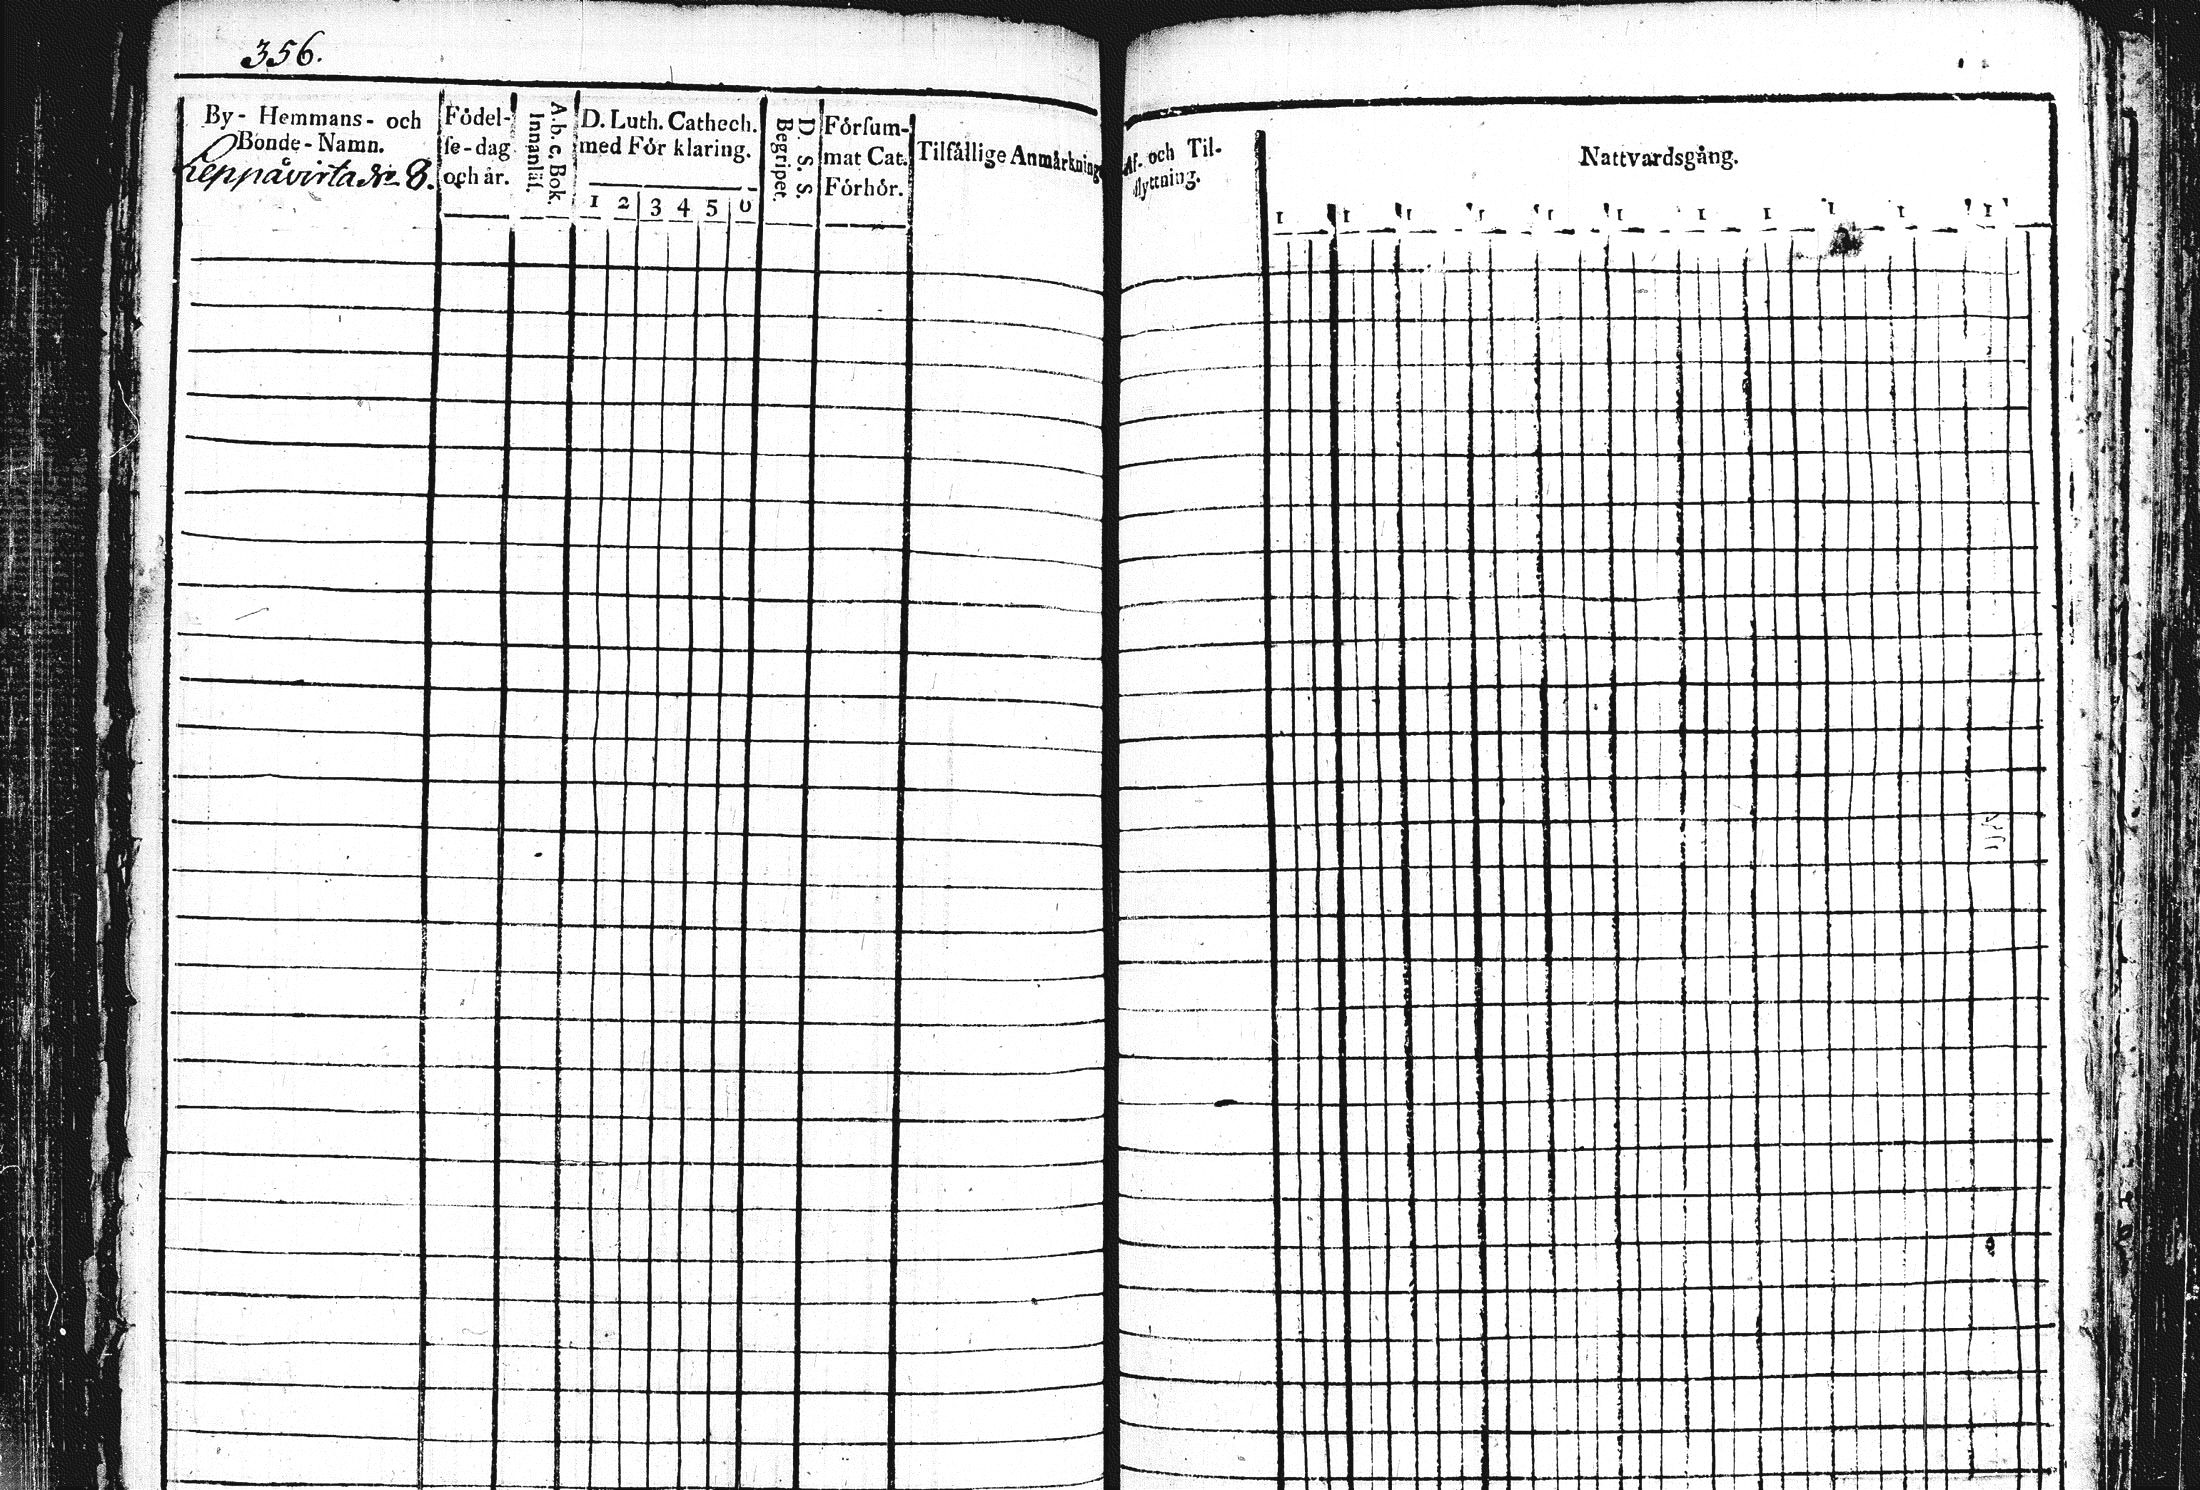 356.
By- Hemmans- och
Bonde-Namn.
Leppävirta No 8.
Födel-
se-dag
och år.
A.b.c. Bok.
Innanläs.
D. Luth. Cathech.
med För klaring.
1 2 3 4 5 6
D. S. S.
Begripet.
Försum-
mat Cat.
Förhör.
Tilfällige Anmärkning
Af- och Til-
flyttning.
Nattvardsgång.
1 1 1 1 1 1 1 1 1 1 1